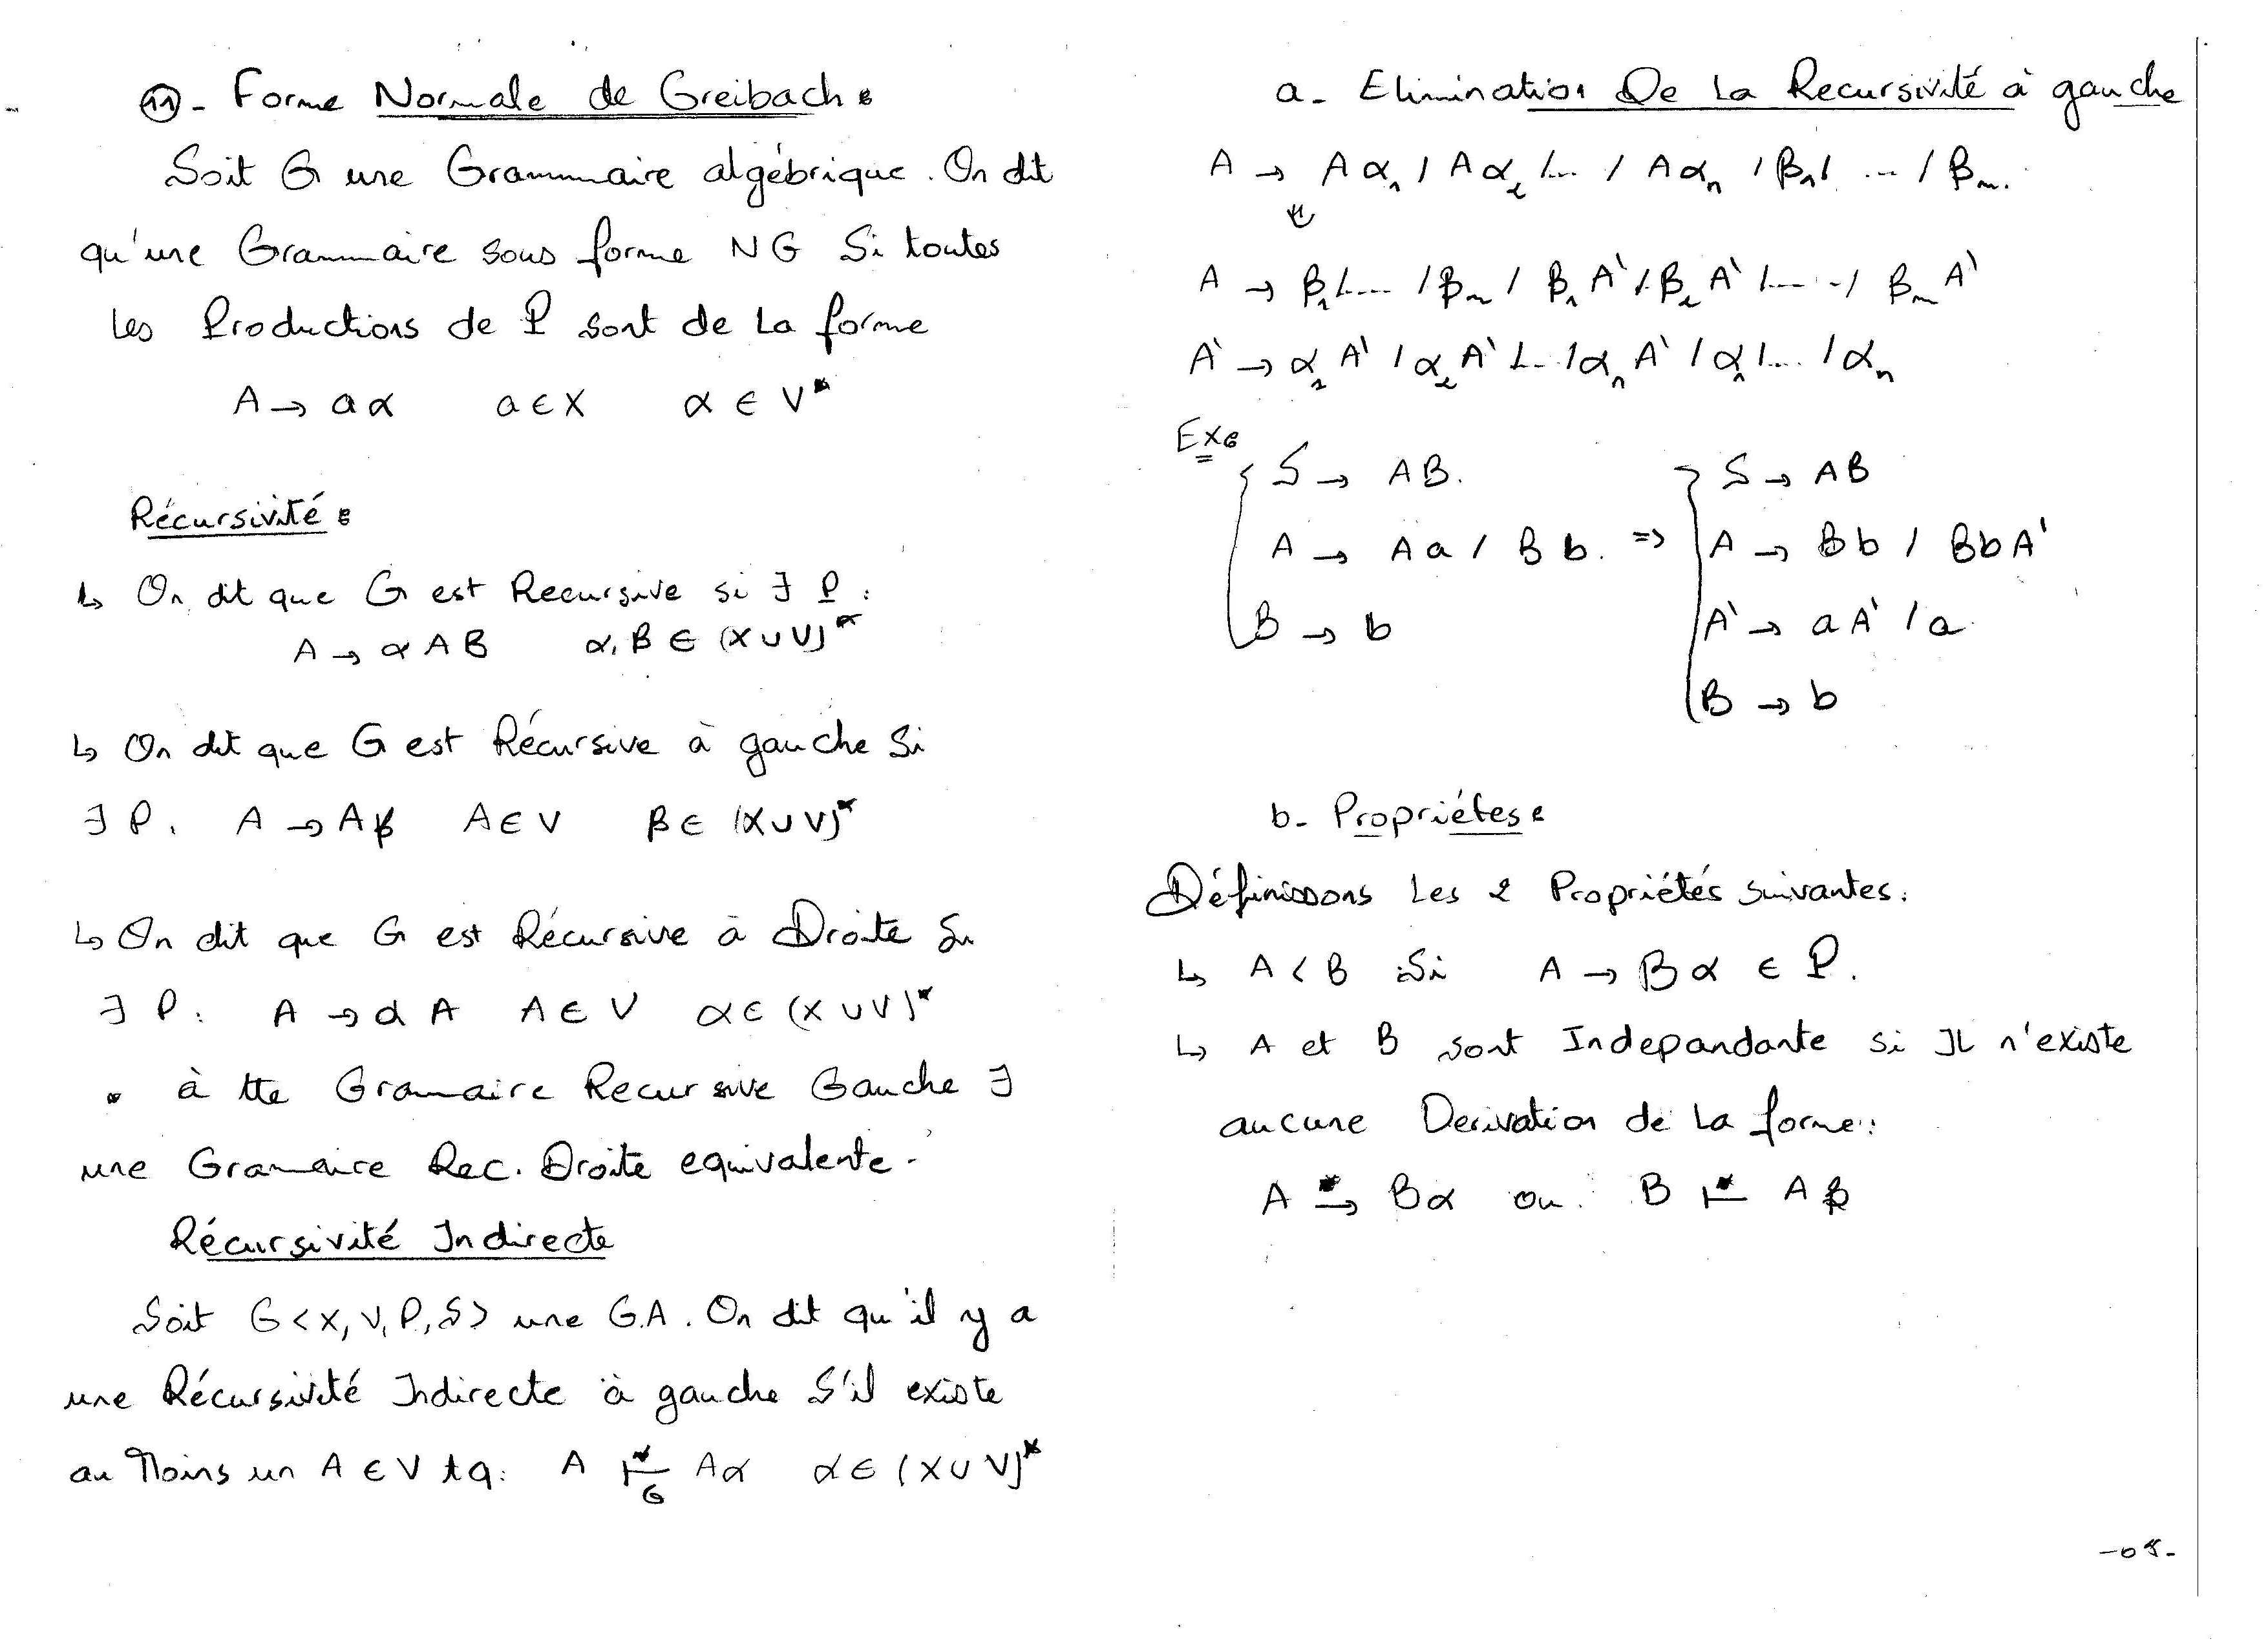 11 - Forme Normale de Greibach :
Soit G une Grammaire algébrique. On dit
qu'une Grammaire sous forme NG Si toutes
les Productions de P sont de La forme
A → aα   a ∈ X   α ∈ V*
Récursivité :
↳ On dit que G est Recursive si ∃ P :
A → α A B   α, B ∈ (X ∪ V)*
↳ On dit que G est Récursive à gauche Si
∃ P. A → Aβ   A ∈ V   β ∈ (X ∪ V)*
↳ On dit que G est Récursive à Droite Si
∃ P : A → α A   A ∈ V   α ∈ (X ∪ V)*
• à tte Gramaire Recursive Gauche ∃
une Gramaire Rec. Droite equivalente.
Récursivité Indirecte
Soit G <X, V, P, S> une G.A. On dit qu'il y a
une Récursivité Indirecte à gauche S'il existe
au Moins un A ∈ V tq : A ⊢*G Aα   α ∈ (X ∪ V)*
a - Elimination De La Recursivité à gauche
A → Aα₁ / Aα₂ /... / Aαₙ / β₁ / ... / βₘ.
A → β₁ /.... / βₘ / β₁ A' / β₂ A' /.... / βₘ A'
A' → α₁ A' / α₂ A' /... / αₙ A' / α₁ /... / αₙ
Exe
S → AB.   S → AB
A → A a / B b. => A → Bb / BbA'
B → b   A' → aA' / a
B → b
b - Propriétes :
Définissons Les 2 Propriétés suivantes :
↳ A < B Si A → B α ∈ P.
↳ A et B sont Indepandante si IL n'existe
aucune Derivation de La forme :
A →* Bα ou B ⊢* Aβ